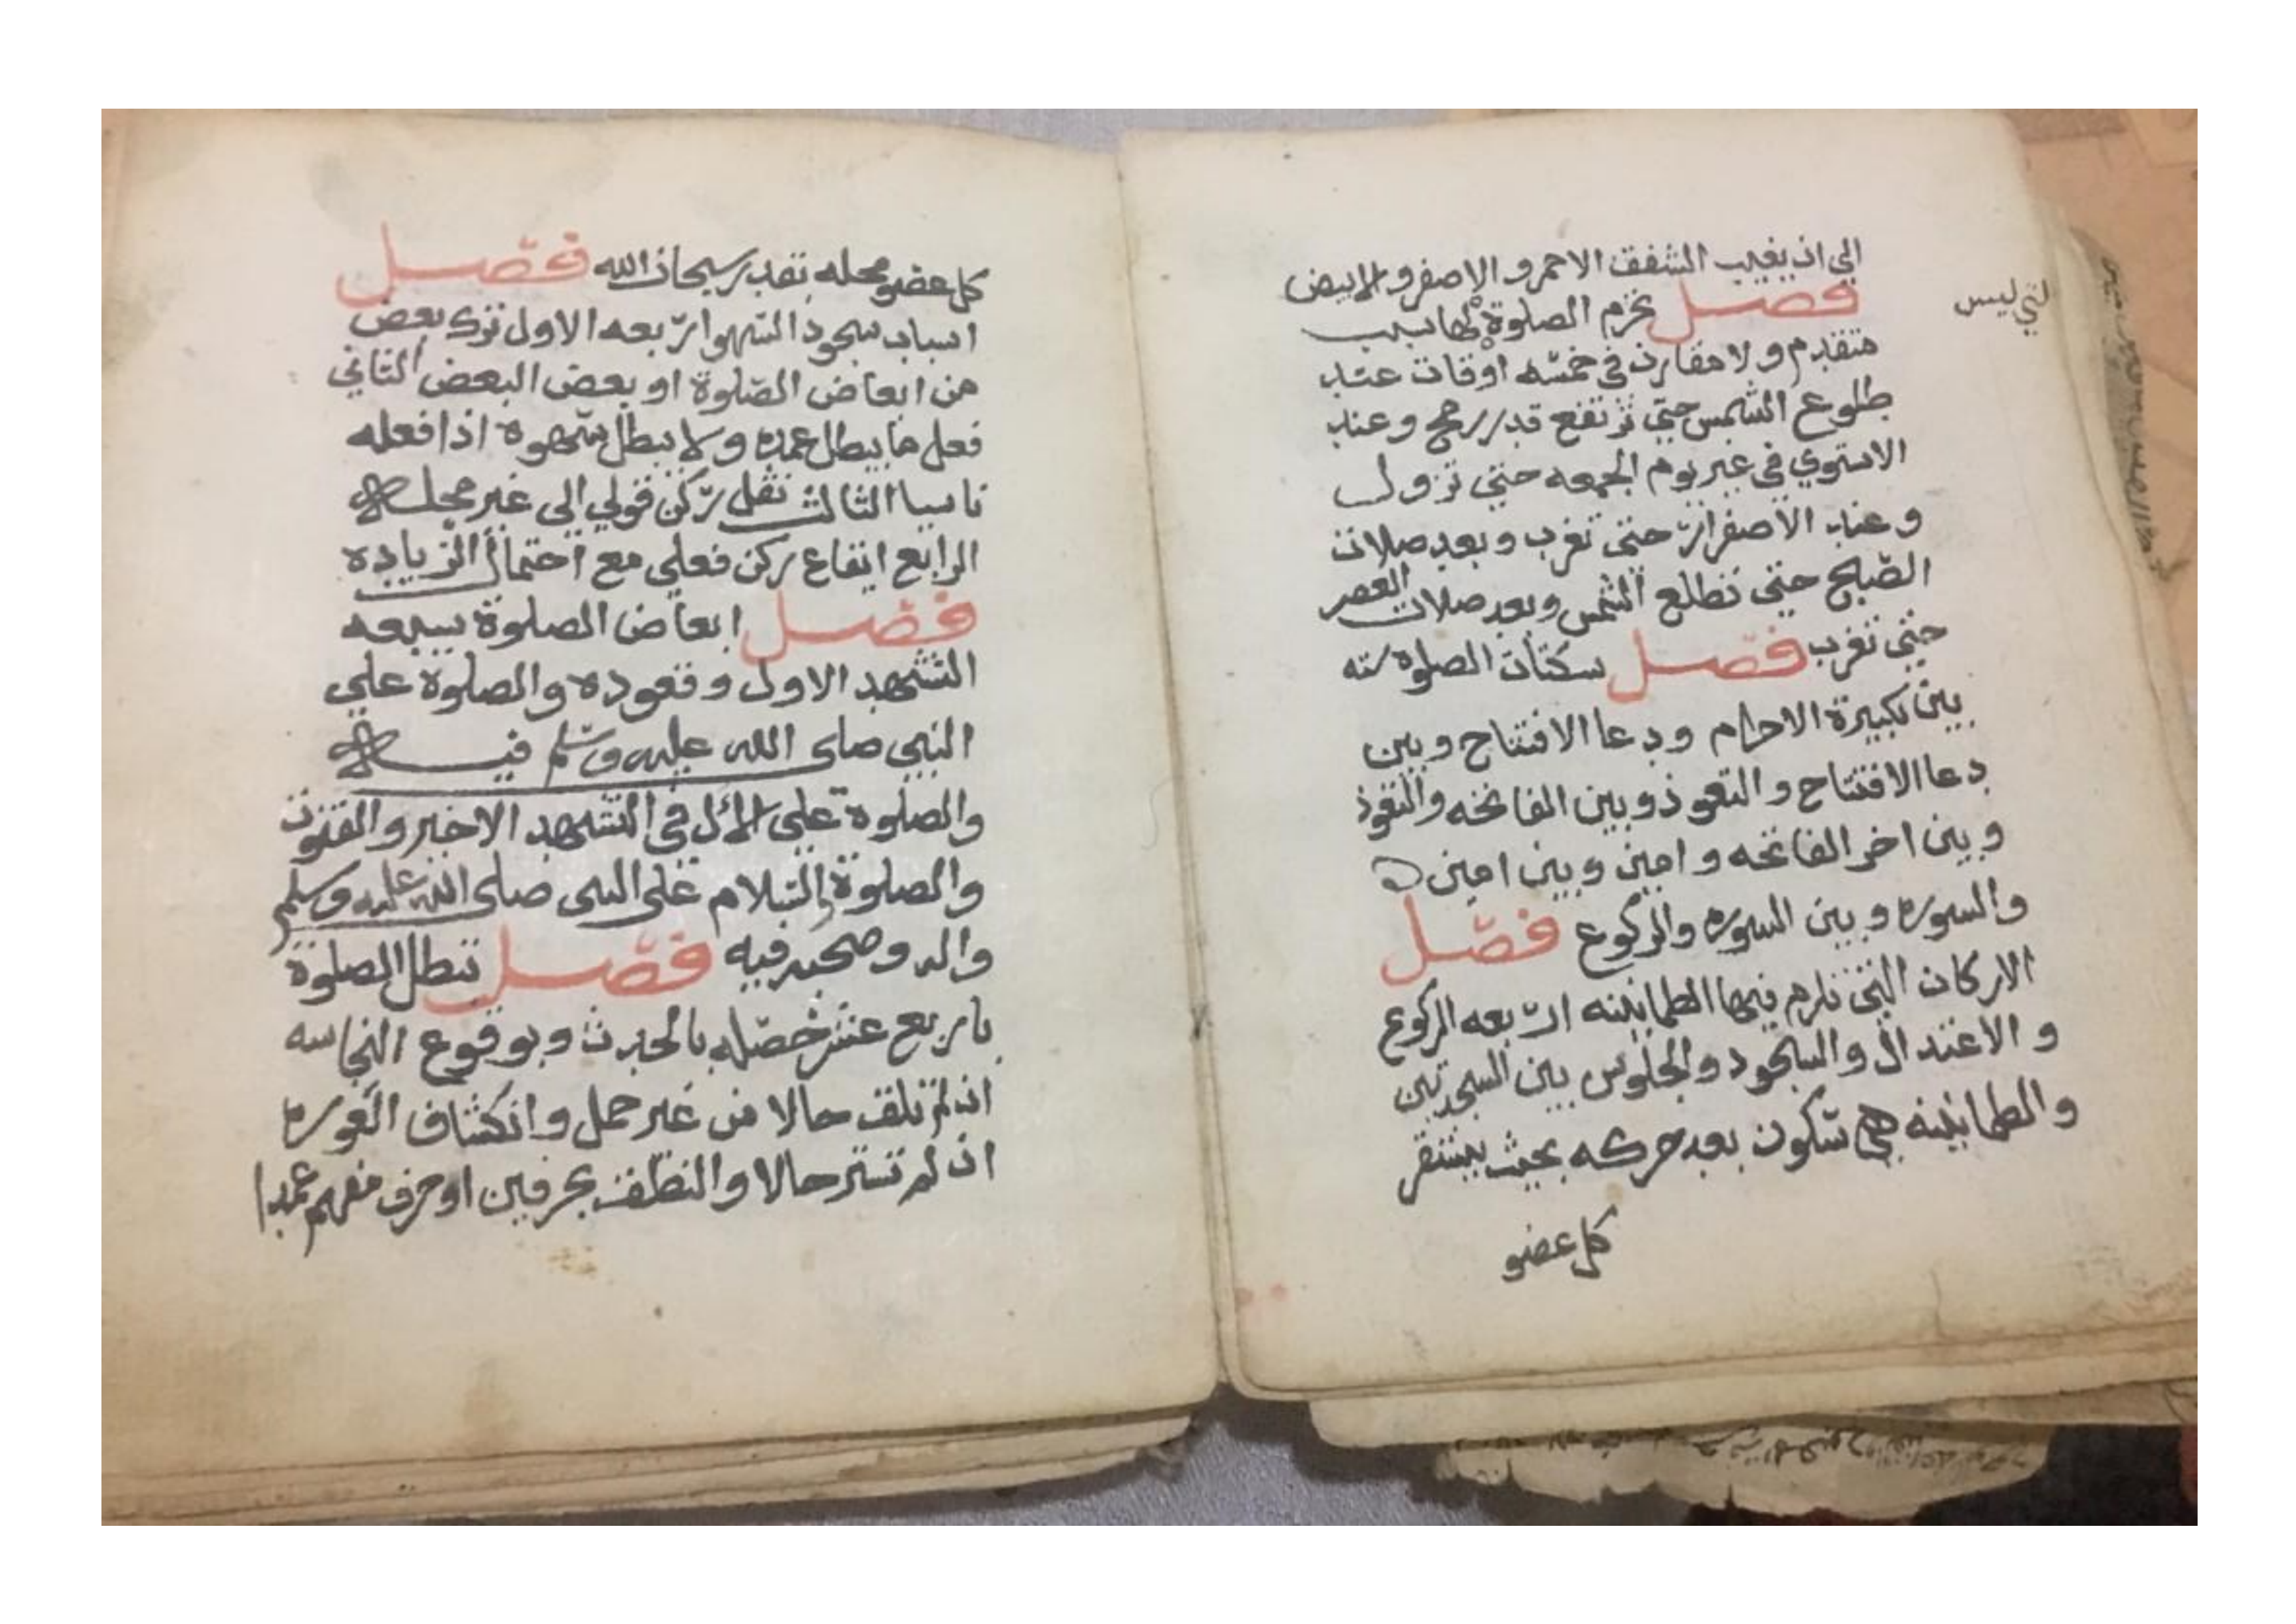 الى ان يغيب الشفق الاحمر والاصفر والابيض
فصل تحرم الصلوة لها سبب
التي ليس
متقدم ولا مقارن في خمسه اوقات عند
طلوع الشمس حتى ترتفع قدر رمح وعند
الاستوي في غير يوم الجمعه حتى تزول
وعند الاصفرار حتى تغرب وبعد صلات
الصبح حتى تطلع الشمس وبعد صلات العصر
حتى تغرب فصل سكتات الصلوة سته
بين تكبيرة الاحرام ودعا الافتتاح وبين
دعا الافتتاح والتعوذ وبين الفاتحه والتعوذ
وبين اخر الفاتحه وامين وبين امين
والسوره وبين السوره والركوع فصل
الاركان التي تلزم فيها الطمانينه اربعه الركوع
والاعتدال والسجود والجلوس بين السجدتين
والطمانينه هي سكون بعد حركه بحيث يستقر
كل عضو
كل عضو محله بقدر سبحان الله فصل
اسباب سجود السهو اربعه الاول ترك بعض
من ابعاض الصلوة او بعض البعض الثاني
فعل ما يبطل عمده ولا يبطل سهوه اذا فعله
ناسيا الثالث نقل ركن قولي الى غير محله
الرابع ايقاع ركن فعلي مع احتمال الزياده
فصل ابعاض الصلوة سبعه
التشهد الاول وقعوده والصلوة علي
النبي صلى الله عليه وسلم فيه
والصلوة على الأل في التشهد الاخير والقنوت
والصلوة والسلام على النبى صلى الله عليه وسلم
واله وصحبه فيه فصل تبطل الصلوة
باربع عشر خصله بالحدث وبوقوع النجاسه
ان لم تلق حالا من غير حمل وانكشاف العوره
ان لم تستر حالا والنطق بحرفين او حرف مفهم عمدا